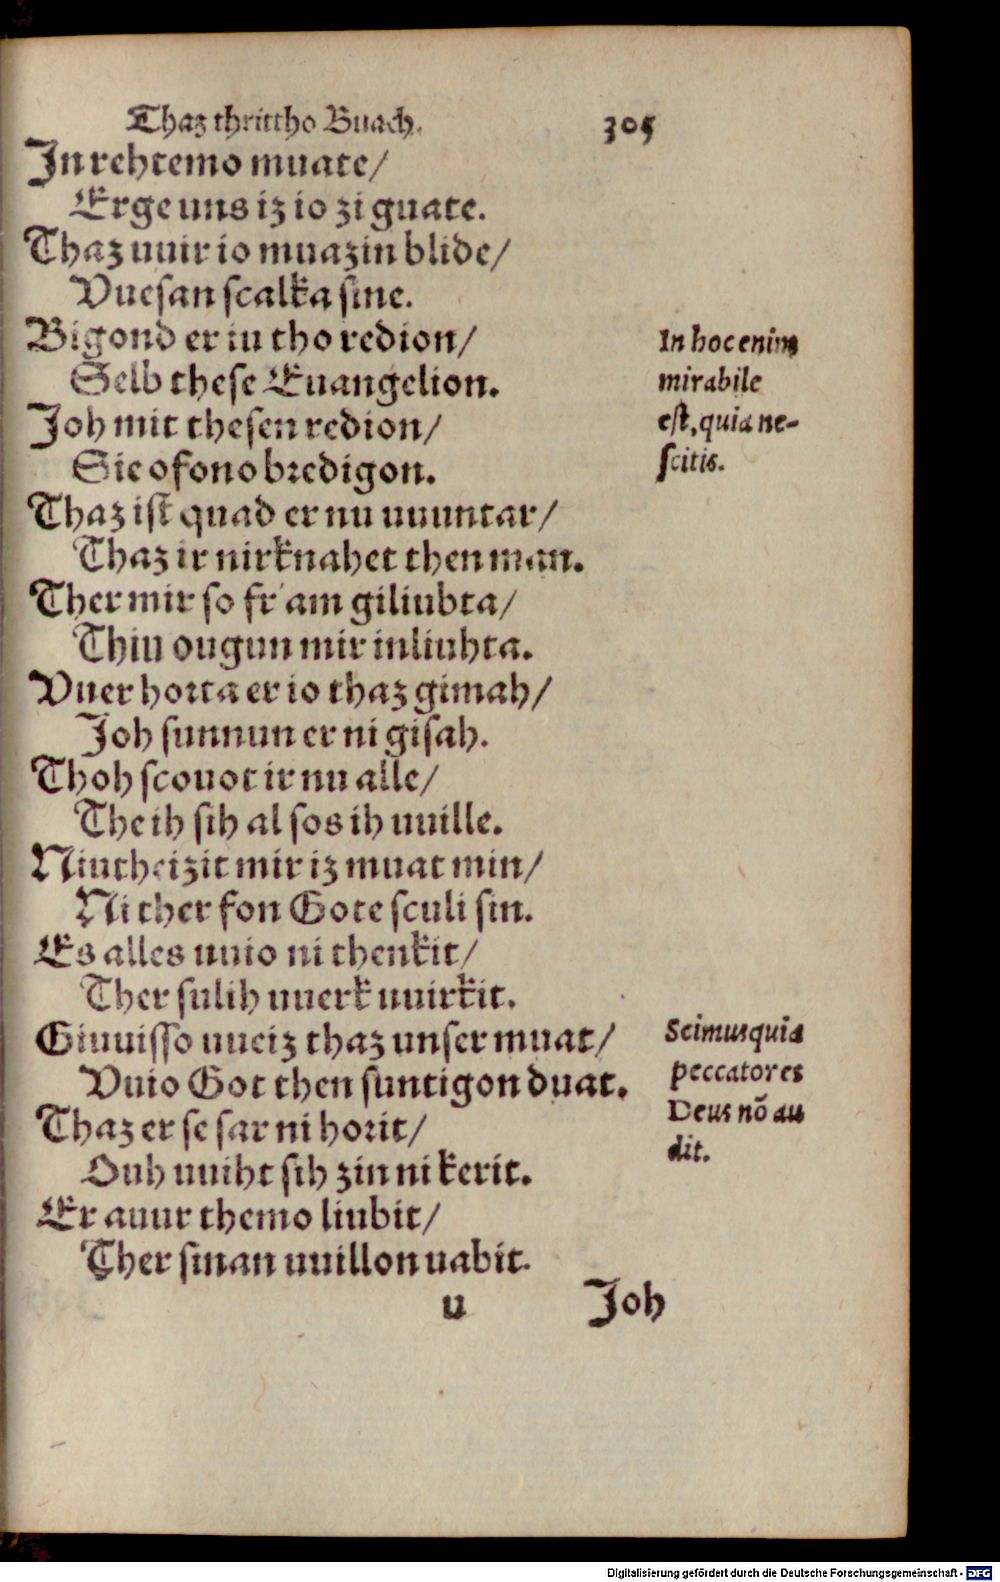 Thaz thrittho Buach. 305
In rehtemo muate/
Erge uns iz io zi guate.
Thaz uuir io muazin blide/
Vuesan scalka sine.
Bigond er iu tho redion/
Selb these Euangelion.
Joh mit thesen redion/
Sie ofono bredigon.
Thaz ist quad er nu uuuntar/
Thaz ir nirknahet then man.
Ther mir so fram giliubta/
Thiu ougun mir inliuhta.
Vuer horta er io thaz gimah/
Joh sunnun er ni gisah.
Thoh scouot ir nu alle/
The ih sih al sos ih uuille.
Niutheizit mir iz muat min/
Ni ther fon Gote sculi sin.
Es alles uuio ni thenkit/
Ther sulih uuerk uuirkit.
Giuuisso uueiz thaz unser muat/
Vuio Got then suntigon duat.
Thaz er se sar ni horit/
Ouh uuiht sih zin ni kerit.
Er auur themo liubit/
Ther sinan uuillon uabit.
u Joh
In hoc enim
mirabile
est, quia ne-
scitis.
Scimus quia
peccatores
Deus nõ au
dit.
Digitalisierung gefördert durch die Deutsche Forschungsgemeinschaft - DFG